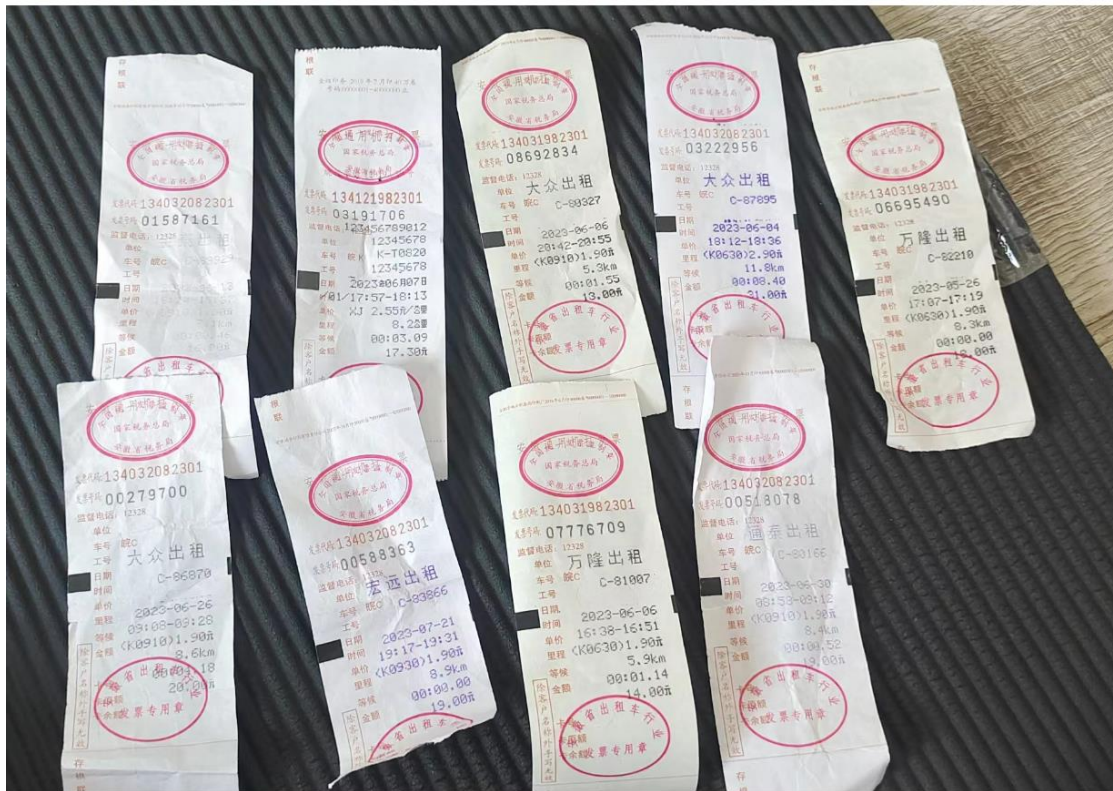 存根联
国家税务总局
安徽省税务局
发票代码 134032082301
发票号码 01587161
监督电话: 12328
单位
车号 皖C
工号
日期
时间
单价
里程
等候
金额
存根联
发票代码 134121982301
发票号码 03191706
监督电话 123456789012
单位 12345678
车号 皖K K-T0820
工号 12345678
日期 2023年06月07日
/01/17:57-18:13
XJ 2.55元/公里
里程 8.2公里
等候 00:03.09
金额 17.30元
全国统一发票监制章
国家税务总局
安徽省税务局
发票代码 134031982301
发票号码 08692834
监督电话: 12328
单位 大众出租
车号 皖C C-80327
工号
日期 2023-06-06
时间 20:42-20:55
单价 (K0910)1.90元
里程 5.3km
等候 00:01.55
金额 13.00元
安徽省出租车行业
发票专用章
国家税务总局
安徽省税务局
发票代码 134032082301
发票号码 03222956
监督电话: 12328
单位 大众出租
车号 皖C C-87895
工号
日期 2023-06-04
时间 18:12-18:36
单价 (K0630)2.90元
里程 11.8km
等候 00:08.40
金额 31.00元
安徽省出租车行业
发票专用章
存根联
国家税务总局
安徽省税务局
发票代码 134031982301
发票号码 06695490
监督电话: 12328
单位 万隆出租
车号 皖C C-82210
工号
日期 2023-05-26
时间 17:07-17:19
单价 (K0630)1.90元
里程 8.3km
等候 00:00.00
金额 18.00元
安徽省出租车行业
发票专用章
国家税务总局
安徽省税务局
发票代码 134032082301
发票号码 00279700
监督电话: 12328
单位 大众出租
车号 皖C C-86870
工号
日期 2023-06-26
时间 09:08-09:28
单价 (K0910)1.90元
里程 8.6km
等候
金额 20.00元
安徽省出租车行业
发票专用章
存根联
存根联
国家税务总局
安徽省税务局
发票代码 134032082301
发票号码 00588363
监督电话: 12328
单位 宏远出租
车号 皖C C-83866
工号
日期 2023-07-21
时间 19:17-19:31
单价 (K0930)1.90元
里程 8.9km
等候 00:00.00
金额 19.00元
安徽省出租车行业
国家税务总局
安徽省税务局
发票代码 134031982301
发票号码 07776709
监督电话: 12328
单位 万隆出租
车号 皖C C-81007
工号
日期 2023-06-06
时间 16:38-16:51
单价 (K0630)1.90元
里程 5.9km
等候 00:01.14
金额 14.00元
安徽省出租车行业
发票专用章
存根联
国家税务总局
安徽省税务局
发票代码 134032082301
发票号码 00518078
监督电话: 12328
单位 通泰出租
车号 皖C C-80166
工号
日期 2023-06-30
时间 08:53-09:12
单价 (K0910)1.90元
里程 8.4km
等候 00:00.52
金额 19.00元
安徽省出租车行业
发票专用章
存根